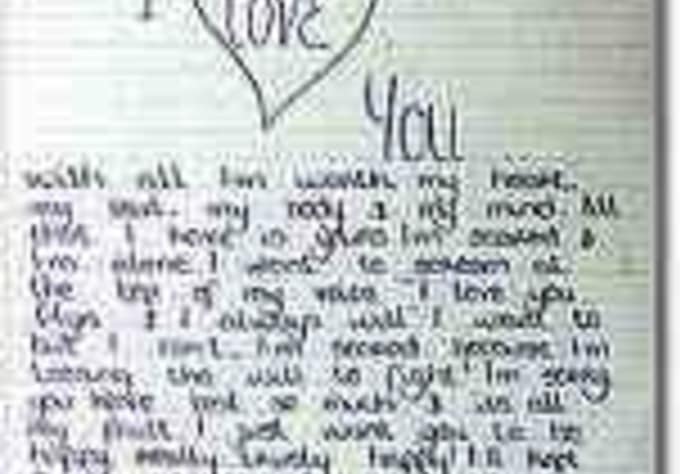 I
LOVE
YOU
with all I'm worth, my heart,
my soul, my body & my mind. All
that I have is given I'm scared &
I'm alone I want to scream at
the top of my voice "I love you
& I always will" I want to
but I can't. I'm scared because I'm
loosing the will to fight! I'm sorry
you have lost so much & its all
my fault I just want you to be
happy really truely happy! I'll